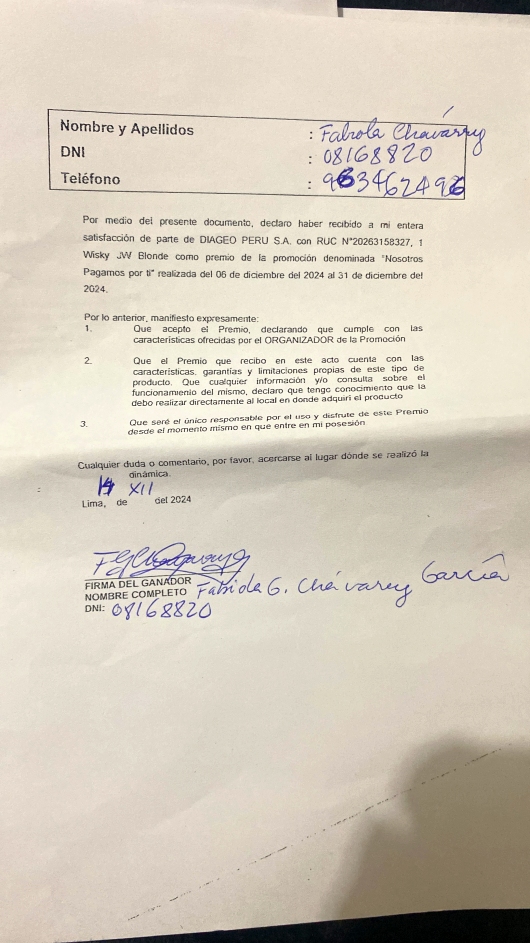 Nombre y Apellidos : Fabiola Chávarry
DNI : 08168820
Teléfono : 963462496
Por medio del presente documento, declaro haber recibido a mi entera
satisfacción de parte de DIAGEO PERU S.A. con RUC N°20263158327, 1
Wisky JW Blonde como premio de la promoción denominada "Nosotros
Pagamos por ti" realizada del 06 de diciembre del 2024 al 31 de diciembre del
2024.
Por lo anterior, manifiesto expresamente:
1. Que acepto el Premio, declarando que cumple con las
características ofrecidas por el ORGANIZADOR de la Promoción
2. Que el Premio que recibo en este acto cuenta con las
características, garantías y limitaciones propias de este tipo de
producto. Que cualquier información y/o consulta sobre el
funcionamienio del mismo, declaro que tengo conocimiento que la
debo realizar directamente al local en donde adquirí el producto
3. Que seré el único responsable por el uso y disfrute de este Premio
desde el momento mismo en que entre en mi posesión
Cualquier duda o comentario, por favor, acercarse al lugar dónde se realizó la
dinámica.
14 XII
Lima, de del 2024
FIRMA DEL GANADOR
NOMBRE COMPLETO Fabiola G. Chávarry García
DNI: 08168820